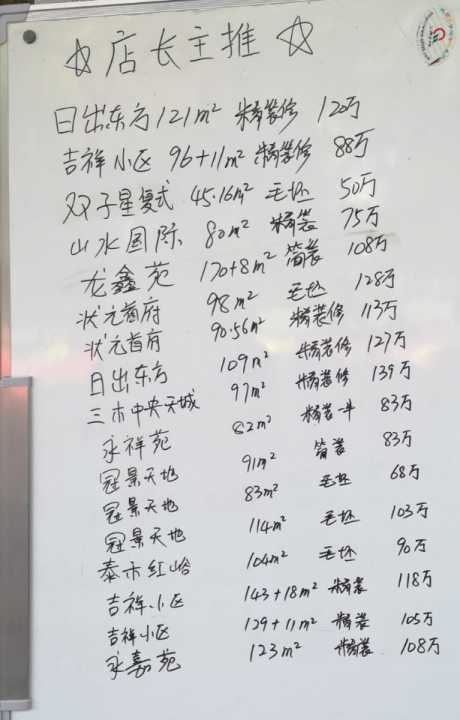 ☆店长主推☆
日出东方 121m² 精装修 120万
吉祥小区 96+11m² 精装修 88万
双子星复式 45.16m² 毛坯 50万
山水国际 80m² 精装 75万
龙鑫苑 170+8m² 简装 108万
状元首府 98m² 毛坯 128万
状元首府 90.56m² 精装修 113万
日出东方 109m² 精装修 127万
三木中央天城 97m² 精装修 139万
永祥苑 82m² 精装一半 83万
冠景天地 91m² 简装 83万
冠景天地 83m² 毛坯 68万
冠景天地 114m² 毛坯 103万
泰木红峪 104m² 毛坯 90万
吉祥小区 143+18m² 精装 118万
吉祥小区 129+11m² 精装 105万
永嘉苑 123m² 精装 108万